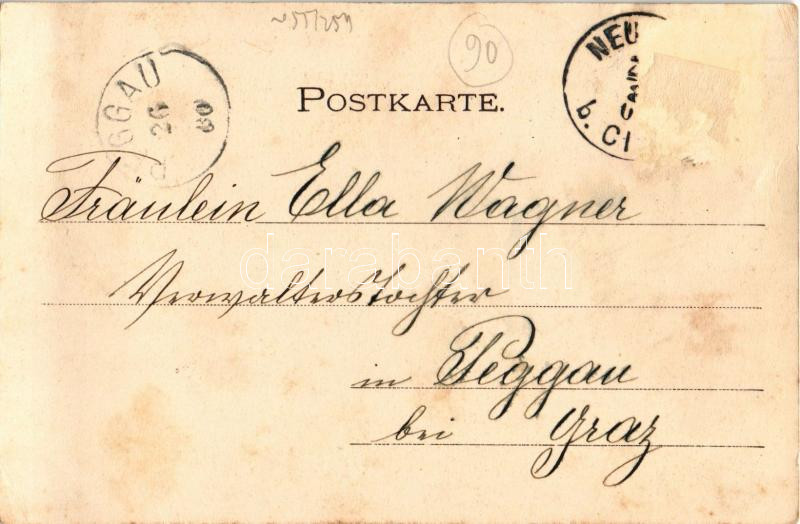 90
NEU
b. CI
GGAU
26
00
POSTKARTE.
Fräulein Ella Wagner
Verwalterstochter
in Peggau
bei Graz
darabanth